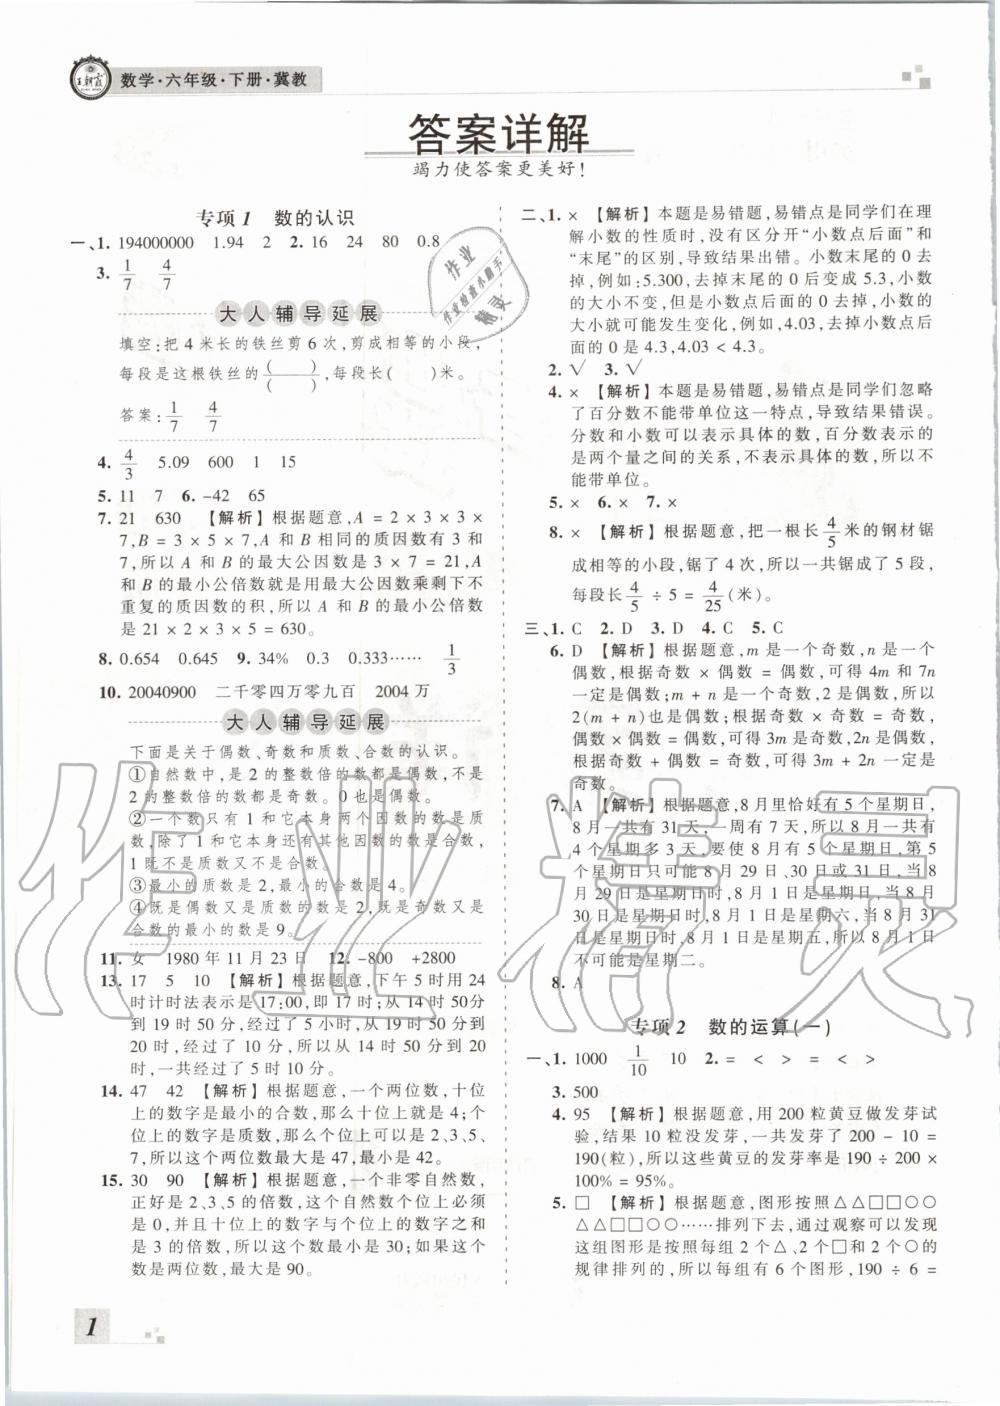 王朝霞
数学·六年级·下册·冀教
答案详解
竭力使答案更美好!
专项1 数的认识
一、1. 194000000 1.94 2 2. 16 24 80 0.8
3. 1/7 4/7
大人辅导延展
填空:把4米长的铁丝剪6次,剪成相等的小段,
每段是这根铁丝的( )/( ),每段长( )米。
答案: 1/7 4/7
4. 4/3 5.09 600 1 15
5. 11 7 6. -42 65
7. 21 630 【解析】根据题意,A = 2 × 3 × 3 ×
7,B = 3 × 5 × 7,A 和 B 相同的质因数有 3 和
7,所以 A 和 B 的最大公因数是 3 × 7 = 21,A
和 B 的最小公倍数就是用最大公因数乘剩下不
重复的质因数的积,所以 A 和 B 的最小公倍数
是 21 × 2 × 3 × 5 = 630。
8. 0.654 0.645 9. 34% 0.3 0.333…… 1/3
10. 20040900 二千零四万零九百 2004 万
大人辅导延展
下面是关于偶数、奇数和质数、合数的认识。
①自然数中,是 2 的整数倍的数都是偶数,不是
2 的整数倍的数都是奇数。0 也是偶数。
②一个数只有 1 和它本身两个因数的数是质
数,除了 1 和它本身还有其他因数的数是合数,
1 既不是质数又不是合数。
③最小的质数是 2,最小的合数是 4。
④既是偶数又是质数的数是 2,既是奇数又是
合数的最小的数是 9。
11. 女 1980 年 11 月 23 日 12. -800 +2800
13. 17 5 10 【解析】根据题意,下午 5 时用 24
时计时法表示是 17:00,即 17 时;从 14 时 50分
到 19 时 50 分,经过了 5 小时,从 19 时 50分到
20 时,经过了 10 分,所以从 14 时 50 分到 20
时,一共经过了 5 时 10 分。
14. 47 42 【解析】根据题意,一个两位数,十位
上的数字是最小的合数,那么十位上就是 4;个
位上的数字是质数,那么个位上可以是 2、3、5、
7,所以这个两位数最大是 47,最小是 42。
15. 30 90 【解析】根据题意,一个非零自然数,
正好是 2、3、5 的倍数,这个自然数个位上必须
是 0,并且十位上的数字与个位上的数字之和
是 3 的倍数,所以这个数最小是 30;如果这个
数是两位数,最大是 90。
二、1. × 【解析】本题是易错题,易错点是同学们在理
解小数的性质时,没有区分开“小数点后面”和
“末尾”的区别,导致结果出错。小数末尾的 0 去
掉,例如:5.300,去掉末尾的 0 后变成 5.3,小数
的大小不变,但是小数点后面的 0 去掉,小数的
大小就可能发生变化,例如,4.03,去掉小数点后
面的 0 是 4.3,4.03 < 4.3。
2. √ 3. √
4. × 【解析】本题是易错题,易错点是同学们忽略
了百分数不能带单位这一特点,导致结果错误。
分数和小数可以表示具体的数,百分数表示的
是两个量之间的关系,不表示具体的数,所以不
能带单位。
5. × 6. × 7. ×
8. × 【解析】根据题意,把一根长 4/5 米的钢材锯
成相等的小段,锯了 4 次,所以一共锯成了 5 段,
每段长 4/5 ÷ 5 = 4/25(米)。
三、1. C 2. D 3. D 4. C 5. C
6. D 【解析】根据题意,m 是一个奇数,n 是一个
偶数,根据奇数 × 偶数 = 偶数,可得 4m 和 7n
一定是偶数;m + n 是一个奇数,2 是偶数,所以
2(m + n)也是偶数;根据奇数 × 奇数 = 奇数,
偶数 × 偶数 = 偶数,可得 3m 是奇数,2n 是偶
数;根据奇数 + 偶数 = 奇数,可得 3m + 2n 一定是
奇数。
7. A 【解析】根据题意,8 月里恰好有 5 个星期日,
8 月一共有 31 天,一周有 7 天,所以 8 月一共有
4 个星期多 3 天,要使 8 月有 5 个星期日,第 5
个星期日只可能是 8 月 29 日、30 日或 31 日,当 8
月 29 日是星期日时,8 月 1 日是星期日,当 8 月
30 日是星期日时,8 月 1 日是星期六,当 8 月 31
日是星期日时,8 月 1 日是星期五,所以 8 月 1 日
不可能是星期二。
8. A
专项2 数的运算(一)
一、1. 1000 1/10 10 2. = < > = < >
3. 500
4. 95 【解析】根据题意,用 200 粒黄豆做发芽试
验,结果 10 粒没发芽,一共发芽了 200 - 10 =
190(粒),所以这些黄豆的发芽率是 190 ÷ 200 ×
100% = 95%。
5. □ 【解析】根据题意,图形按照△△□□○○
△△□□○○……排列下去,通过观察可以发现
这组图形是按照每组 2 个△、2 个□和 2 个○的
规律排列的,所以每组有 6 个图形,190 ÷ 6 =
1
作业精灵
作业
作业检查小助手
精灵